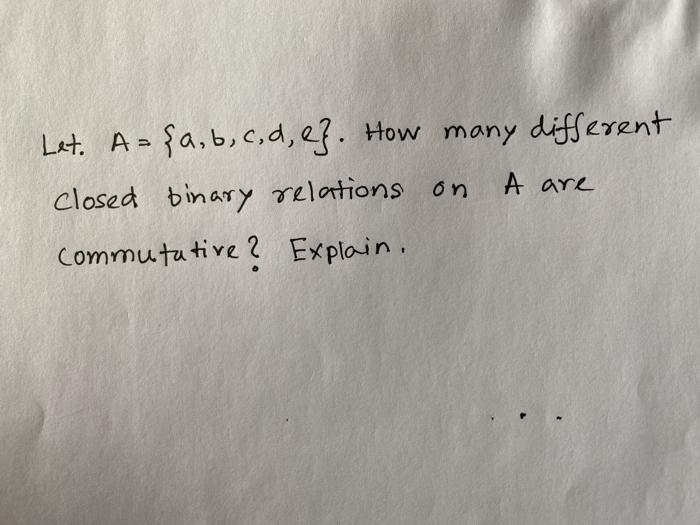 Let. A = {a,b,c,d,e}. How many different
closed binary relations on A are
commutative? Explain.